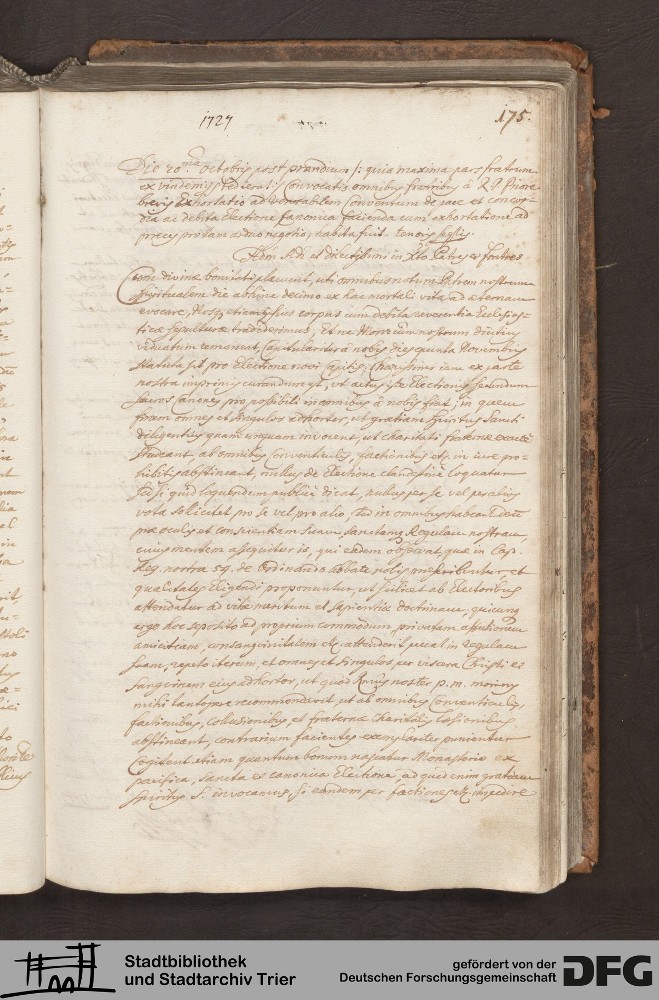 1727
175.
Die 20ma octobris post prandium /: quia maxima pars fratrum
ex vindemijs redierat :/ Convocatis omnibus fratribus à R. P. Priore
brevis Exhortatio ad venerabilem Conventum de pace et concor-
dia ac debita Electione Canonica facienda cum exhortatione ad
preces pro tam arduo negotio, habita fuit tenoris seqtis.
Adm Rdi et dilectissimi in Xto Patres et fratres
Cum divinæ bonitati placuerit, uti omnibus notum Patrem nostrum
Spiritualem die abhinc decimo ex hac mortali vita ad æternam
evocare, Nosq etiam ipsius corpus cum debita reverentia Ecclesias-
ticæ sepulturæ tradiderimus, Et ne Monrium nostrum diutius
viduatum remaneat, Capitulariter à nobis dies quinta Novembris
statuta sit pro Electione novi Capitis, Charissimi iam ex parte
nostra imprimis curandum est, ut actus ipse Electionis secundum
sacros canones, pro possibili in omnibus à nobis fiat; in quem
finem omnes et singulos adhortor, ut gratiam Spiritus Sancti
diligentius quam unquam invocent, ut charitati fraternæ
studeant, ab omnibus Conventiculis, factionibus etc in iure pro-
hibitis abstineant, nullus de Electione clandestinè loquatur
sed si quid loquendum publicè dicat, nullus per se vel per alios
vota solicitet pro se vel pro alio, sed in omnibus habeant Deum
præ oculis et conscientiam suam, sanctamq Regulam nostram,
cuius mentem assequitur is, qui eadem observat quæ in Cap.
Reg. nostræ 59. de Ordinando Abbate nobis præscribuntur, et
qualitates Eligendi proponuntur, ut scilicet ab Electoribus
attendatur ad vitæ meritum et sapientiæ doctrinam, quicunq
ergo hoc seposito ad proprium commodum, privatam affectionem
amicitiam, consanguinitatem etc. attenderit peccat in regulam
suam, repeto iterum, et omnes et singulos per viscera Christi et
sanguinem eius adhortor, ut quod Rmus noster p. m. moriens
mihi tantopere recommendavit, ut ab omnibus Conventiculis,
factionibus, Collusionibus, et fraternæ charitatis læsionibus
abstineant, contrarium facientes exemplariter punientur
Cogitent etiam quantum bonum nascatur Monasterio ex
pacifica, sancta et canonica Electione, ad quid enim gratiam
Spiritus S. invocamus, si eandem per factiones etc. impedire
Stadtbibliothek
und Stadtarchiv Trier
gefördert von der
Deutschen Forschungsgemeinschaft
DFG